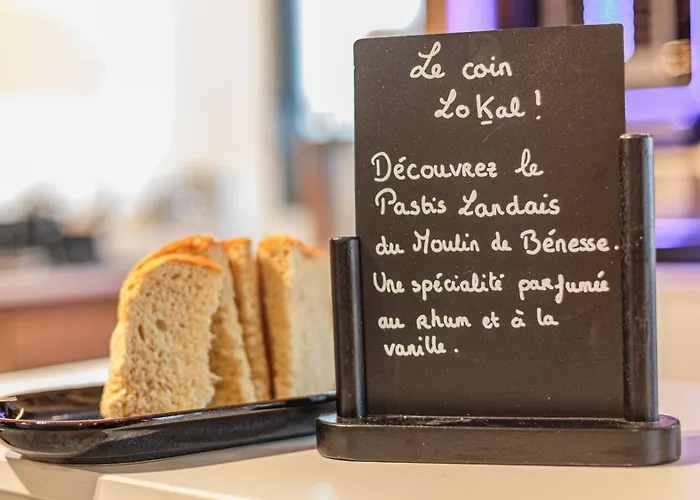 Le coin
LoKal !
Découvrez le
Pastis Landais
du Moulin de Bénesse.
Une spécialité parfumée
au rhum et à la
vanille.